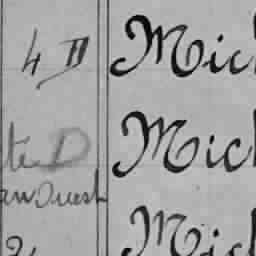 4 D Mich
te D Mich
an Ouest
2 Mich